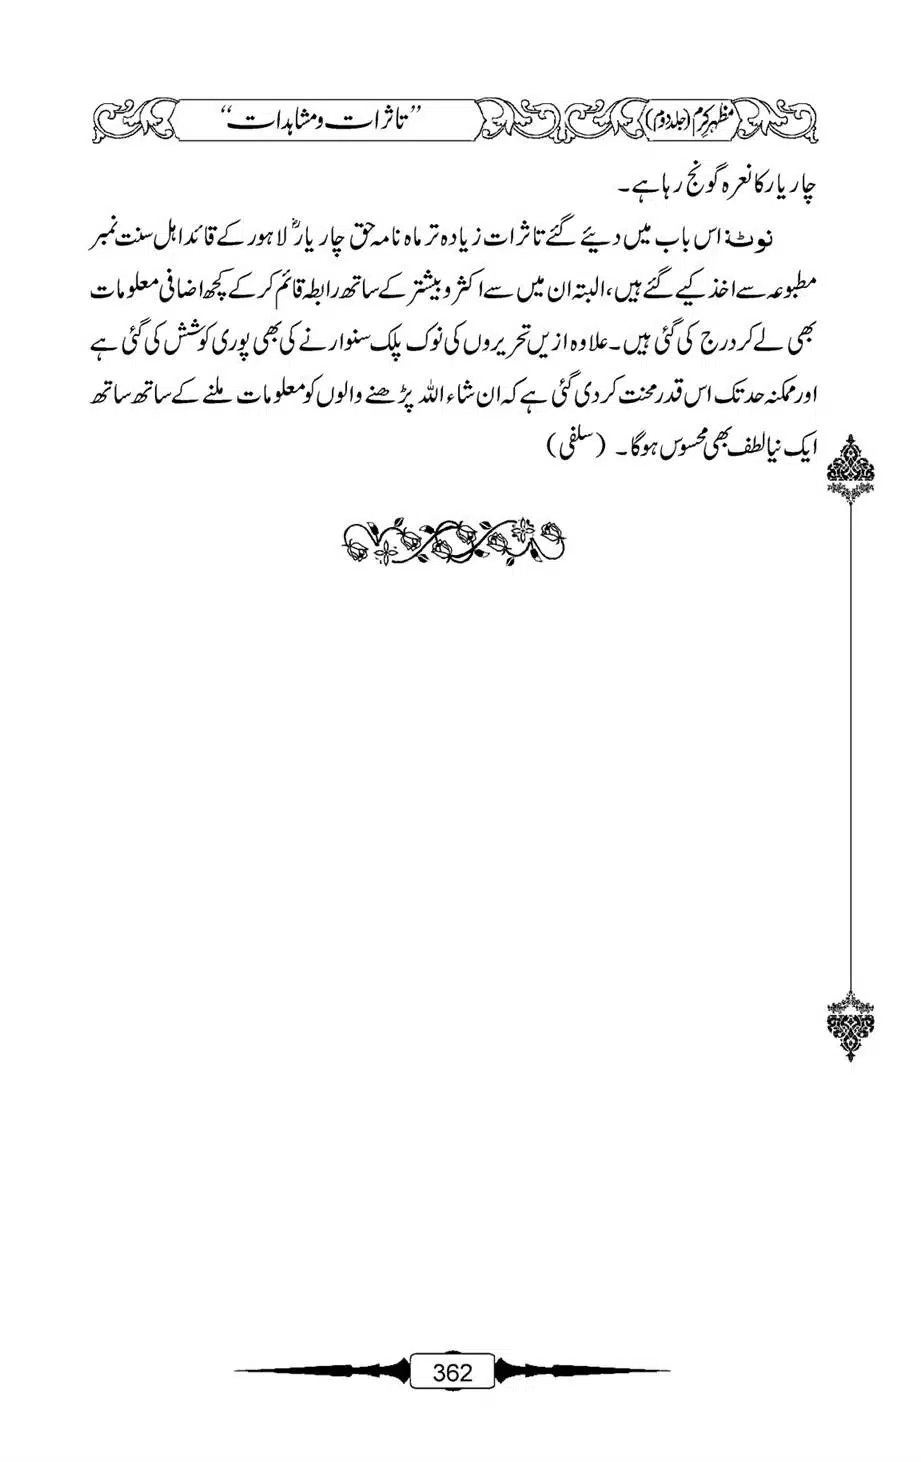 مظہرِ کرم (جلد دوم)
”تاثرات و مشاہدات“
چار یار کا نعرہ گونج رہا ہے۔
نوٹ: اس باب میں دیئے گئے تاثرات زیادہ تر ماہ نامہ حق چار یارؓ لاہور کے قائد اہل سنت نمبر
مطبوعہ سے اخذ کیے گئے ہیں، البتہ ان میں سے اکثر و بیشتر کے ساتھ رابطہ قائم کر کے کچھ اضافی معلومات
بھی لے کر درج کی گئی ہیں۔ علاوہ ازیں تحریروں کی نوک پلک سنوارنے کی بھی پوری کوشش کی گئی ہے
اور ممکنہ حد تک اس قدر محنت کر دی گئی ہے کہ ان شاء اللہ پڑھنے والوں کو معلومات ملنے کے ساتھ ساتھ
ایک نیا لطف بھی محسوس ہوگا۔ (سلفی)
362